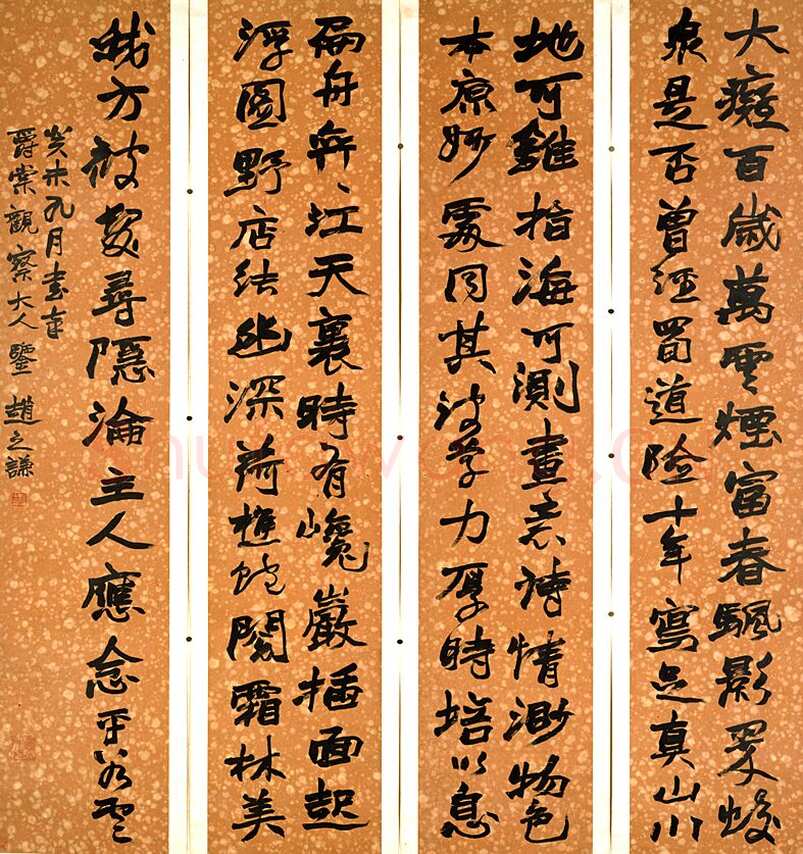 大癡百歲萬雲煙富春飄影蛟
泉是否曾經蜀道險十年寫足真山川
地可錐指海可測畫意詩情渺物色
本原妙處同其波學力厚時培以息
扁舟奔、江天裏時有巉巖插面起
浮圖野店結幽深荷樵蛇閣霜林美
我方被髮尋隱淪主人應念平雲
癸未九月書奉
爵棠觀察大人鑒 趙之謙